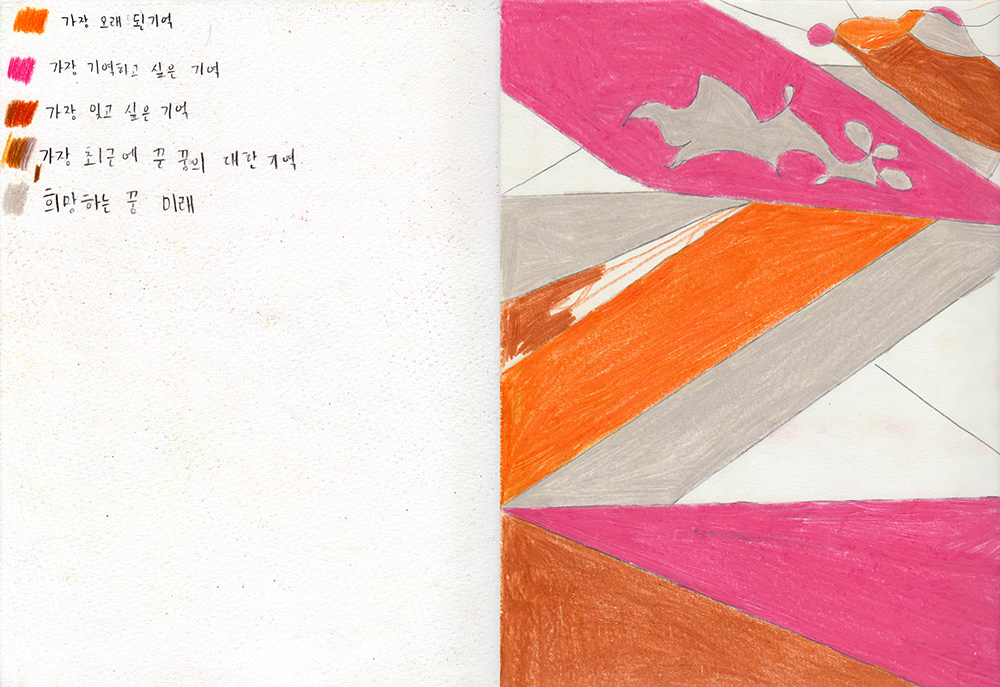 가장 오래 된 기억
가장 기억하고 싶은 기억
가장 잊고 싶은 기억
가장 최근에 꾼 꿈의 대한 기억
희망하는 꿈 미래